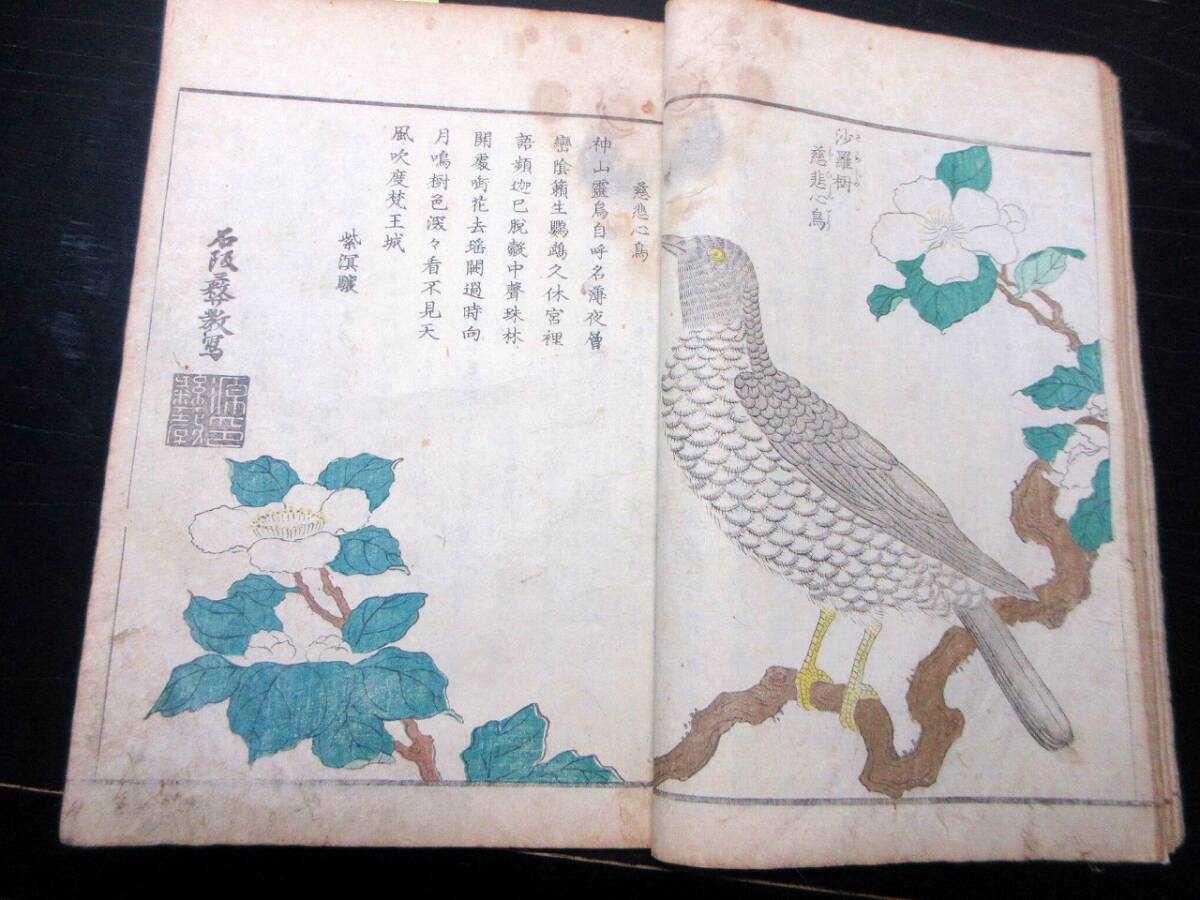 沙羅樹
さらじゆ
慈悲心鳥
慈悲心鳥
神山靈鳥自呼名薄夜曾
巒陰籟生鸚鵡久休宮裡
語頻迦已脫㲉中聲珠林
開處啣花去瑶闕過時向
月鳴樹色深々看不見天
風吹度梵王城
紫溟
石阪
教寫